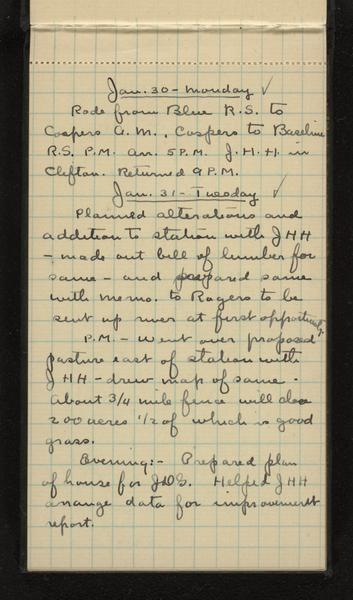 Jan. 30 - Monday ✓
Rode from Blue R.S. to
Cospers A.M., Cospers to Baseline
R.S. P.M. arr. 5 P.M. J.H.H. in
Clifton. Returned 9 P.M.
Jan. 31 - Tuesday ✓
Planned alterations and
addition to station with JHH
- made out bill of lumber for
same - and prepared same
with memo. to Rogers to be
sent up river at first opportunity.
P.M. - Went over proposed
pasture east of station with
JHH - drew map of same.
About 3/4 mile fence will close
200 acres 1/2 of which is good
grass.
Evening:- Prepared plan
of house for JDG. Helped JHH
arrange data for improvement
report.